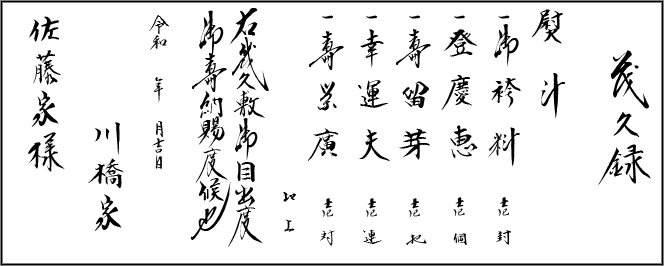 茂久録
熨斗
一御袴料 壱封
一登慶恵 壱個
一壽留芽 壱把
一幸運夫 壱連
一壽栄廣 壱対
以上
右幾久敷御目出度
御壽納賜度候也
令和 年 月吉日
川橋家
佐藤家様